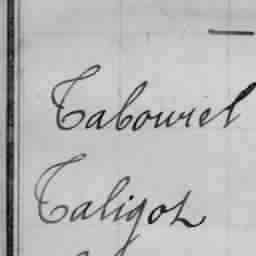 Tabourel
Taligot